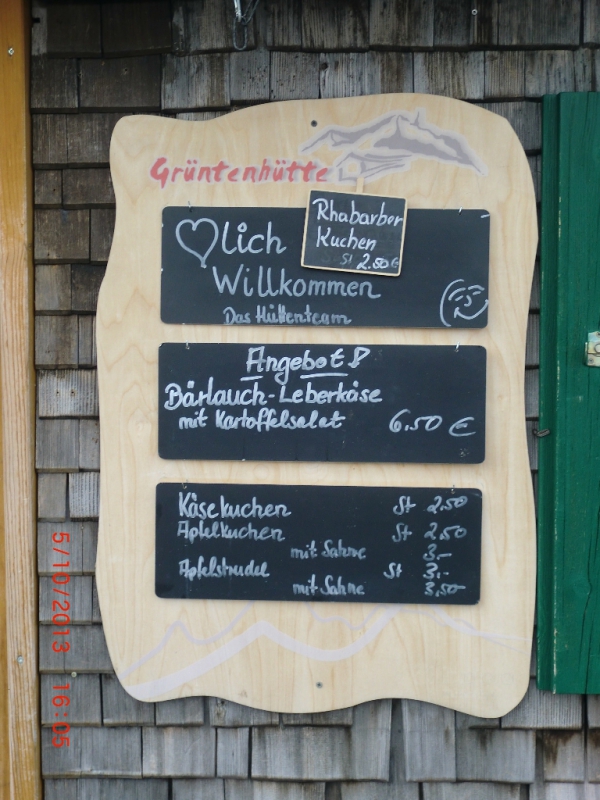 Grüntenhütte
Rhabarber
Kuchen
St 2.50€
♡lich
Willkommen
Das Hüttenteam
Angebot!
Bärlauch-Leberkäse
mit Kartoffelsalat 6.50 €
Käsekuchen St 2.50
Apfelkuchen St 2.50
mit Sahne 3,-
Apfelstrudel St 3,-
mit Sahne 3,50
5/10/2013 16:05